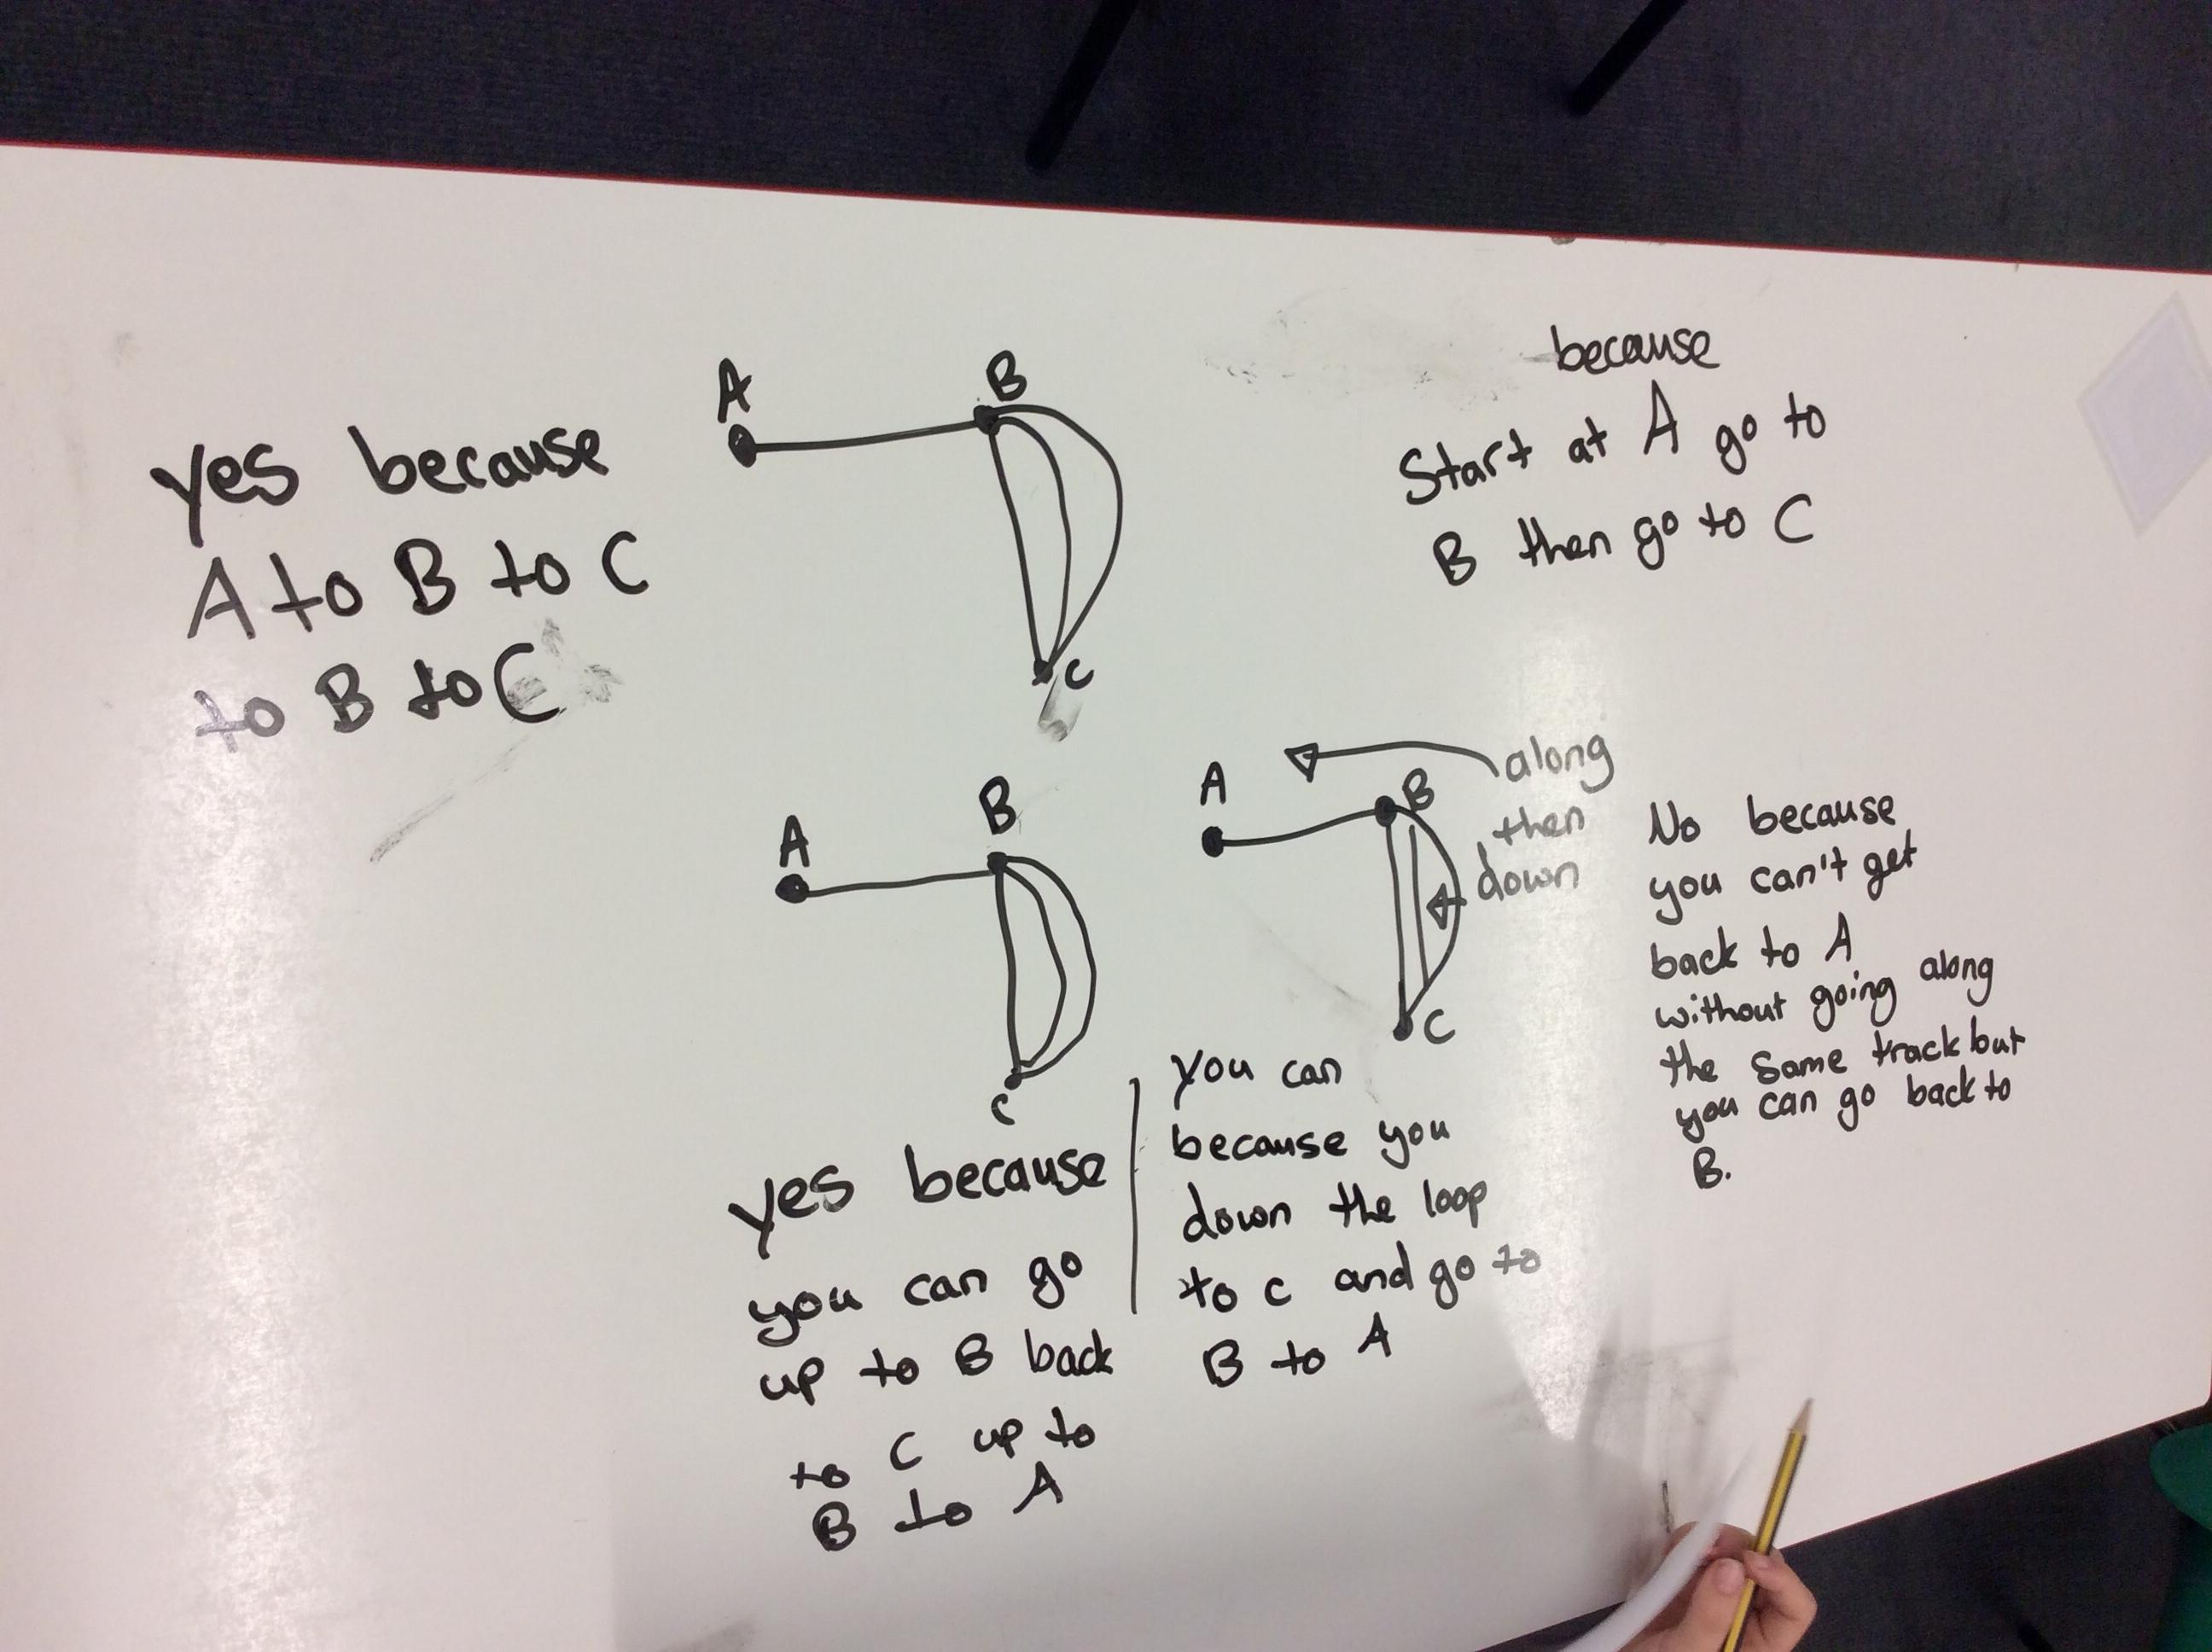 yes because
A to B to C
to B to C
A
B
C
because
Start at A go to
B then go to C
A
B
C
yes because
you can go
up to B back
to C up to
B to A
A
B
C
along
then
down
you can
because you
down the loop
to c and go to
B to A
No because
you can't get
back to A
without going along
the same track but
you can go back to
B.